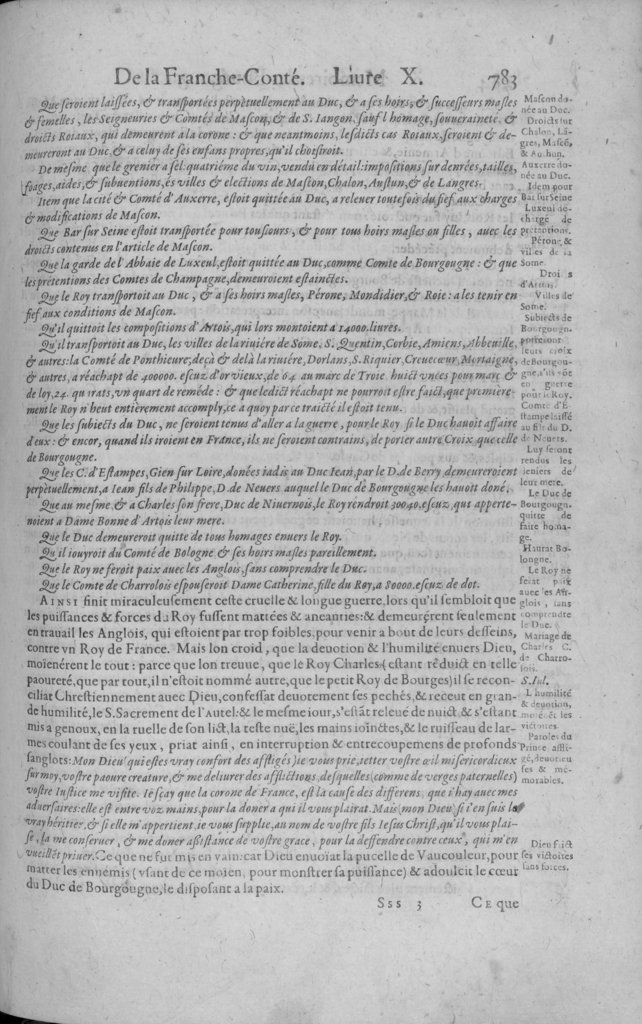 De la Franche-Conté. Liure X. 783
Que seroient laissées, & transportées perpetuellement au Duc, & a ses hoirs, & successeurs masles
& femelles, les Seigneuries & Comtés de Mascon, & de S. Iangon, sauf l'homage, souueraineté. &
droicts Roiaux, qui demeurent a la corone : & que neantmoins, lesdicts cas Roiaux, seroient & de-
meureront au Duc, & a celuy de ses enfans propres, qu'il choisiroit.
De mesme que le grenier a sel: quatriéme du vin, vendu en détail: impositions sur denrées, tailles,
foages, aides, & subuentions, és villes & elections de Mascon, Chalon, Austun, & de Langres.
Item que la cité & Comté d'Auxerre, estoit quittée au Duc, a releuer toutefois du fief aux charges
& modifications de Mascon.
Que Bar sur Seine estoit transportée pour tousiours, & pour tous hoirs masles ou filles, auec les
droicts contenus en l'article de Mascon.
Que la garde de l'Abbaie de Luxeul, estoit quittée au Duc, comme Comte de Bourgougne : & que
les prétentions des Comtes de Champagne, demeuroient estainctes.
Que le Roy transportoit au Duc, & a ses hoirs masles, Pérone, Mondidier, & Roie: a les tenir en
fief aux conditions de Mascon.
Qu'il quittoit les compositions d'Artois, qui lors montoient a 14000. liures.
Qu'il transportoit au Duc, les villes de la riuiére de Some. S. Quentin, Corbie, Amiens, Abbeuille,
& autres: la Comté de Ponthieure, deçà & delà la riuiére, Dorlans, S. Riquier, Creuecœur, Mortaigne,
& autres, a réachapt de 400000. escuz d'or vieux, de 64 au marc de Troie huict vnces pour marc &
de loy, 24. quirats, vn quart de reméde : & que ledict réachapt ne pourroit estre faict, que premiére-
ment le Roy n'heut entiérement accomply, ce a quoy par ce traicté il estoit tenu.
Que les subiects du Duc, ne seroient tenus d'aller a la guerre, pour le Roy si le Duc hauoit affaire
d'eux : & encor, quand ils iroient en France, ils ne seroient contrains, de porter autre Croix que celle
de Bourgougne.
Que les C. d'Estampes, Gien sur Loire, donées iadis au Duc Iean, par le D. de Berry, demeureroient
perpetuellement, a Iean fils de Philippe, D. de Neuers auquel le Duc de Bourgougne les hauoit doné.
Que au mesme, & a Charles son frere, Duc de Niuernois, le Roy rendroit 30040. escuz, qui apperte-
noient a Dame Bonne d'Artois leur mere.
Que le Duc demeureroit quitte de tous homages enuers le Roy.
Qu'il iouyroit du Comté de Bologne & ses hoirs masles pareillement.
Que le Roy ne feroit paix auec les Anglois, sans comprendre le Duc.
Que le Comte de Charrolois espouseroit Dame Catherine, fille du Roy, a 80000. escuz de dot.
AINSI finit miraculeusement ceste cruelle & longue guerre, lors qu'il sembloit que
les puissances & forces du Roy fussent mattées & aneanties: & demeurérent seulement
en trauail les Anglois, qui estoient par trop foibles, pour venir a bout de leurs desseins,
contre vn Roy de France. Mais lon croid, que la deuotion & l'humilité enuers Dieu,
moïenérent le tout : parce que lon treuue, que le Roy Charles (estant réduict en telle
paoureté, que par tout, il n'estoit nommé autre, que le petit Roy de Bourges) il se recon-
ciliat Chrestiennement auec Dieu, confessat deuotement ses pechés, & receut en gran-
de humilité, le S. Sacrement de l'Autel: & le mesme iour, s'estāt releué de nuict, & s'estant
mis a genoux, en la ruelle de son lict, la teste nuë, les mains ioinctes, & le ruisseau de lar-
mes coulant de ses yeux, priat ainsi, en interruption & entrecoupemens de profonds
sanglots: Mon Dieu qui estes vray confort des affligés ie vous prie, ietter vostre œil misericordieux
sur moy, vostre paoure creature, & me deliurer des afflictions, desquelles (comme de verges paternelles)
vostre Iustice me visite. Ie sçay que la corone de France, est la cause des différens, que i'hay auec mes
aduersaires: elle est entre voz mains, pour la doner a qui il vous plairat. Mais (mon Dieu) si i'en suis le
vray héritier, & si elle m'appertient, ie vous supplie, au nom de vostre fils Iesus Christ, qu'il vous plai-
se, la me conseruer, & me doner assistance de vostre grace, pour la deffendre contre ceux, qui m'en
vueillēt priuer. Ce que ne fut mis en vain: car Dieu enuoiat la pucelle de Vaucouleur, pour
matter les ennemis (vsant de ce moien, pour monstrer sa puissance) & adoulcit le cœur
du Duc de Bourgougne, le disposant a la paix.
Sss 3 CE que
Mascon do-
née au Duc.
Droicts sur
Chalon, Lā-
gres, Mascō,
& Authun.
Auxerre do-
née au Duc.
Idem pour
Bar sur Seine
Luxeul des-
chargé de
prétentions.
Pérone &
villes de la
Some.
Droits
d'Artois.
Villes de
Some.
Subiects de
Bourgougn.
porteront
leurs croix
de Bourgou-
gne, s'ils vōt
en guerre
pour le Roy.
Comté d'E-
stampe laissé
au fils du D.
de Neuers.
Luy seront
rendus les
deniers de
leur mere.
Le Duc de
Bourgougn.
quitte de
faire homa-
ge.
Haurat Bo-
longne.
Le Roy ne
ferat paix
auec les An-
glois, sans
comprendre
le Duc.
Mariage de
Charles C.
de Charro-
lois.
S. Iul.
L'humilité
& deuotion,
moïenét les
victoires.
Paroles du
Prince affli-
gé, deuotieu
ses & me-
morables.
Dieu faict
ses victoires
sans forces.